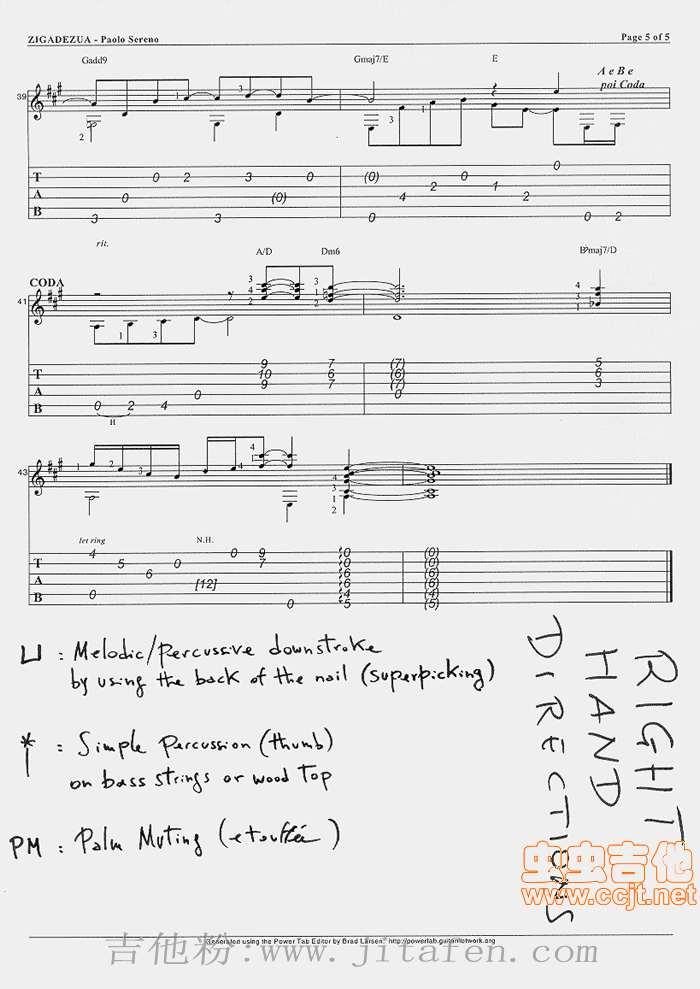 ZIGADEZUA - Paolo Sereno Page 5 of 5
Gadd9 Gmaj7/E E
A e B e
poi Coda
39
1 2 3
T A B
0 2 3 0 (0) 0
0 (0) 2 1
4
3 3 0 0 2
rit.
CODA A/D Dm6 B♭maj7/D
41
T A B
9 7 (7) 5
10 6 (6) 6
9 7 (7) 3
0 (0)
0 2 4
H
43
let ring N.H.
T A B
4 0 9 0 (0)
5 0 7 0 (0)
6 6 (6)
[12] 6 (6)
0 4 (4)
0 5 (5)
⊔ : Melodic/percussive downstroke
by using the back of the nail (superpicking)
* : Simple Percussion (thumb)
on bass strings or wood top
PM : Palm Muting (etouffée)
RIGHT
HAND
DIRECTIONS
虫虫吉他
www.ccjt.net
Generated using the Power Tab Editor by Brad Larsen. http://powertab.guitarnetwork.org
吉他粉:www.jitafen.com